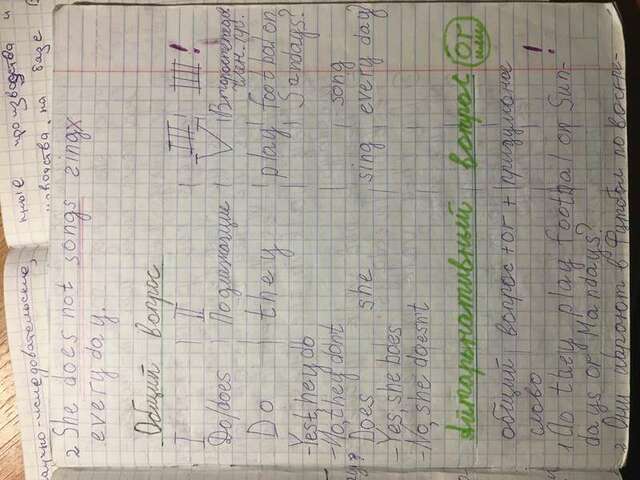 научно-исследовательские,
ные производства и
изводства, на базе В
2 She does not songs singx
every day.
Общий вопрос
I II III IIII!
Do/does Подлежащие V Второстепед.
член. пр.
Do they play footbal on
Sandays?
-Yest, hey do
-No, they dont
song
Does she sing every day?
-Yes, she boes
-No, she doesn't
Айтарьнативный вопрос or
или
общий вопрос + or + придуманое
слово
!
1. Do they play footbal on Sun-
days or Mandays?
2. Они играют в Футбол по воскре-